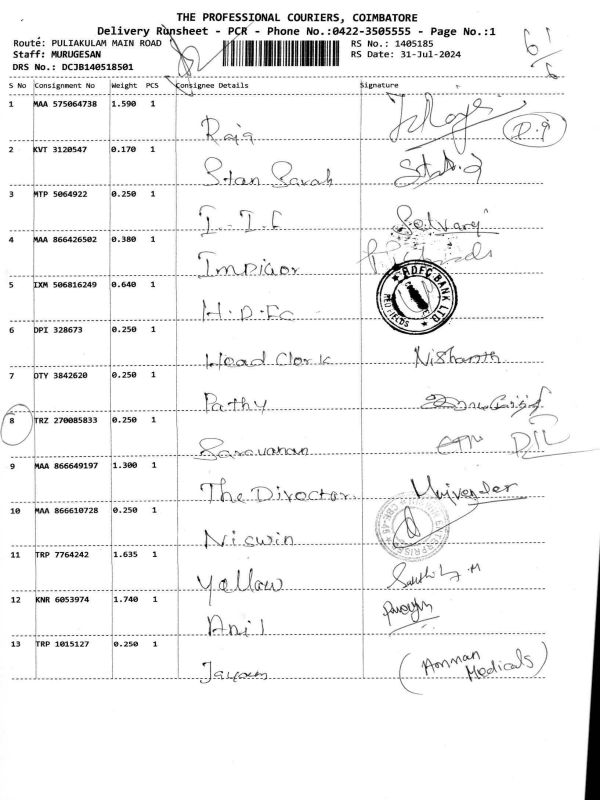 THE PROFESSIONAL COURIERS, COIMBATORE
Delivery Runsheet - PCR - Phone No.:0422-3505555 - Page No.:1
Route: PULIAKULAM MAIN ROAD RS No.: 1405185
Staff: MURUGESAN RS Date: 31-Jul-2024
DRS No.: DCJB140518501
S No Consignment No Weight PCS Consignee Details Signature
1 MAA 575064738 1.590 1
Raja
2 KVT 3120547 0.170 1
Stan Sarah
3 MTP 5064922 0.250 1
I-I-C Selvaraj
4 MAA 866426502 0.380 1
5 IXM 506816249 0.640 1
HDFC BANK LTD
RED FIELDS
H.D.FC
6 DPI 328673 0.250 1
Head Clork Nishanth
7 OTY 3842620 0.250 1
Pathy
8 TRZ 270085833 0.250 1
Saravanan
9 MAA 866649197 1.300 1
The Director
10 MAA 866610728 0.250 1
Niswin
11 TRP 7764242 1.635 1
Yellow
12 KNR 6053974 1.740 1
Anil
13 TRP 1015127 0.250 1
Jayam (Amman
Medicals)